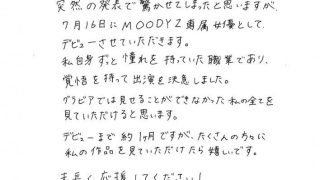 突然の発表で驚かせてしまったと思いますが、
7月16日にMOODYZ専属女優として、
デビューさせていただきます。
私自身ずっと憧れを持っていた職業であり、
覚悟を持って出演を決意しました。
グラビアでは見せることができなかった私の全てを
見ていただけると思います。
デビューまで約1ヶ月ですが、たくさんの方々に
私の作品を見ていただけたら嬉しいです。
末長く応援してください!